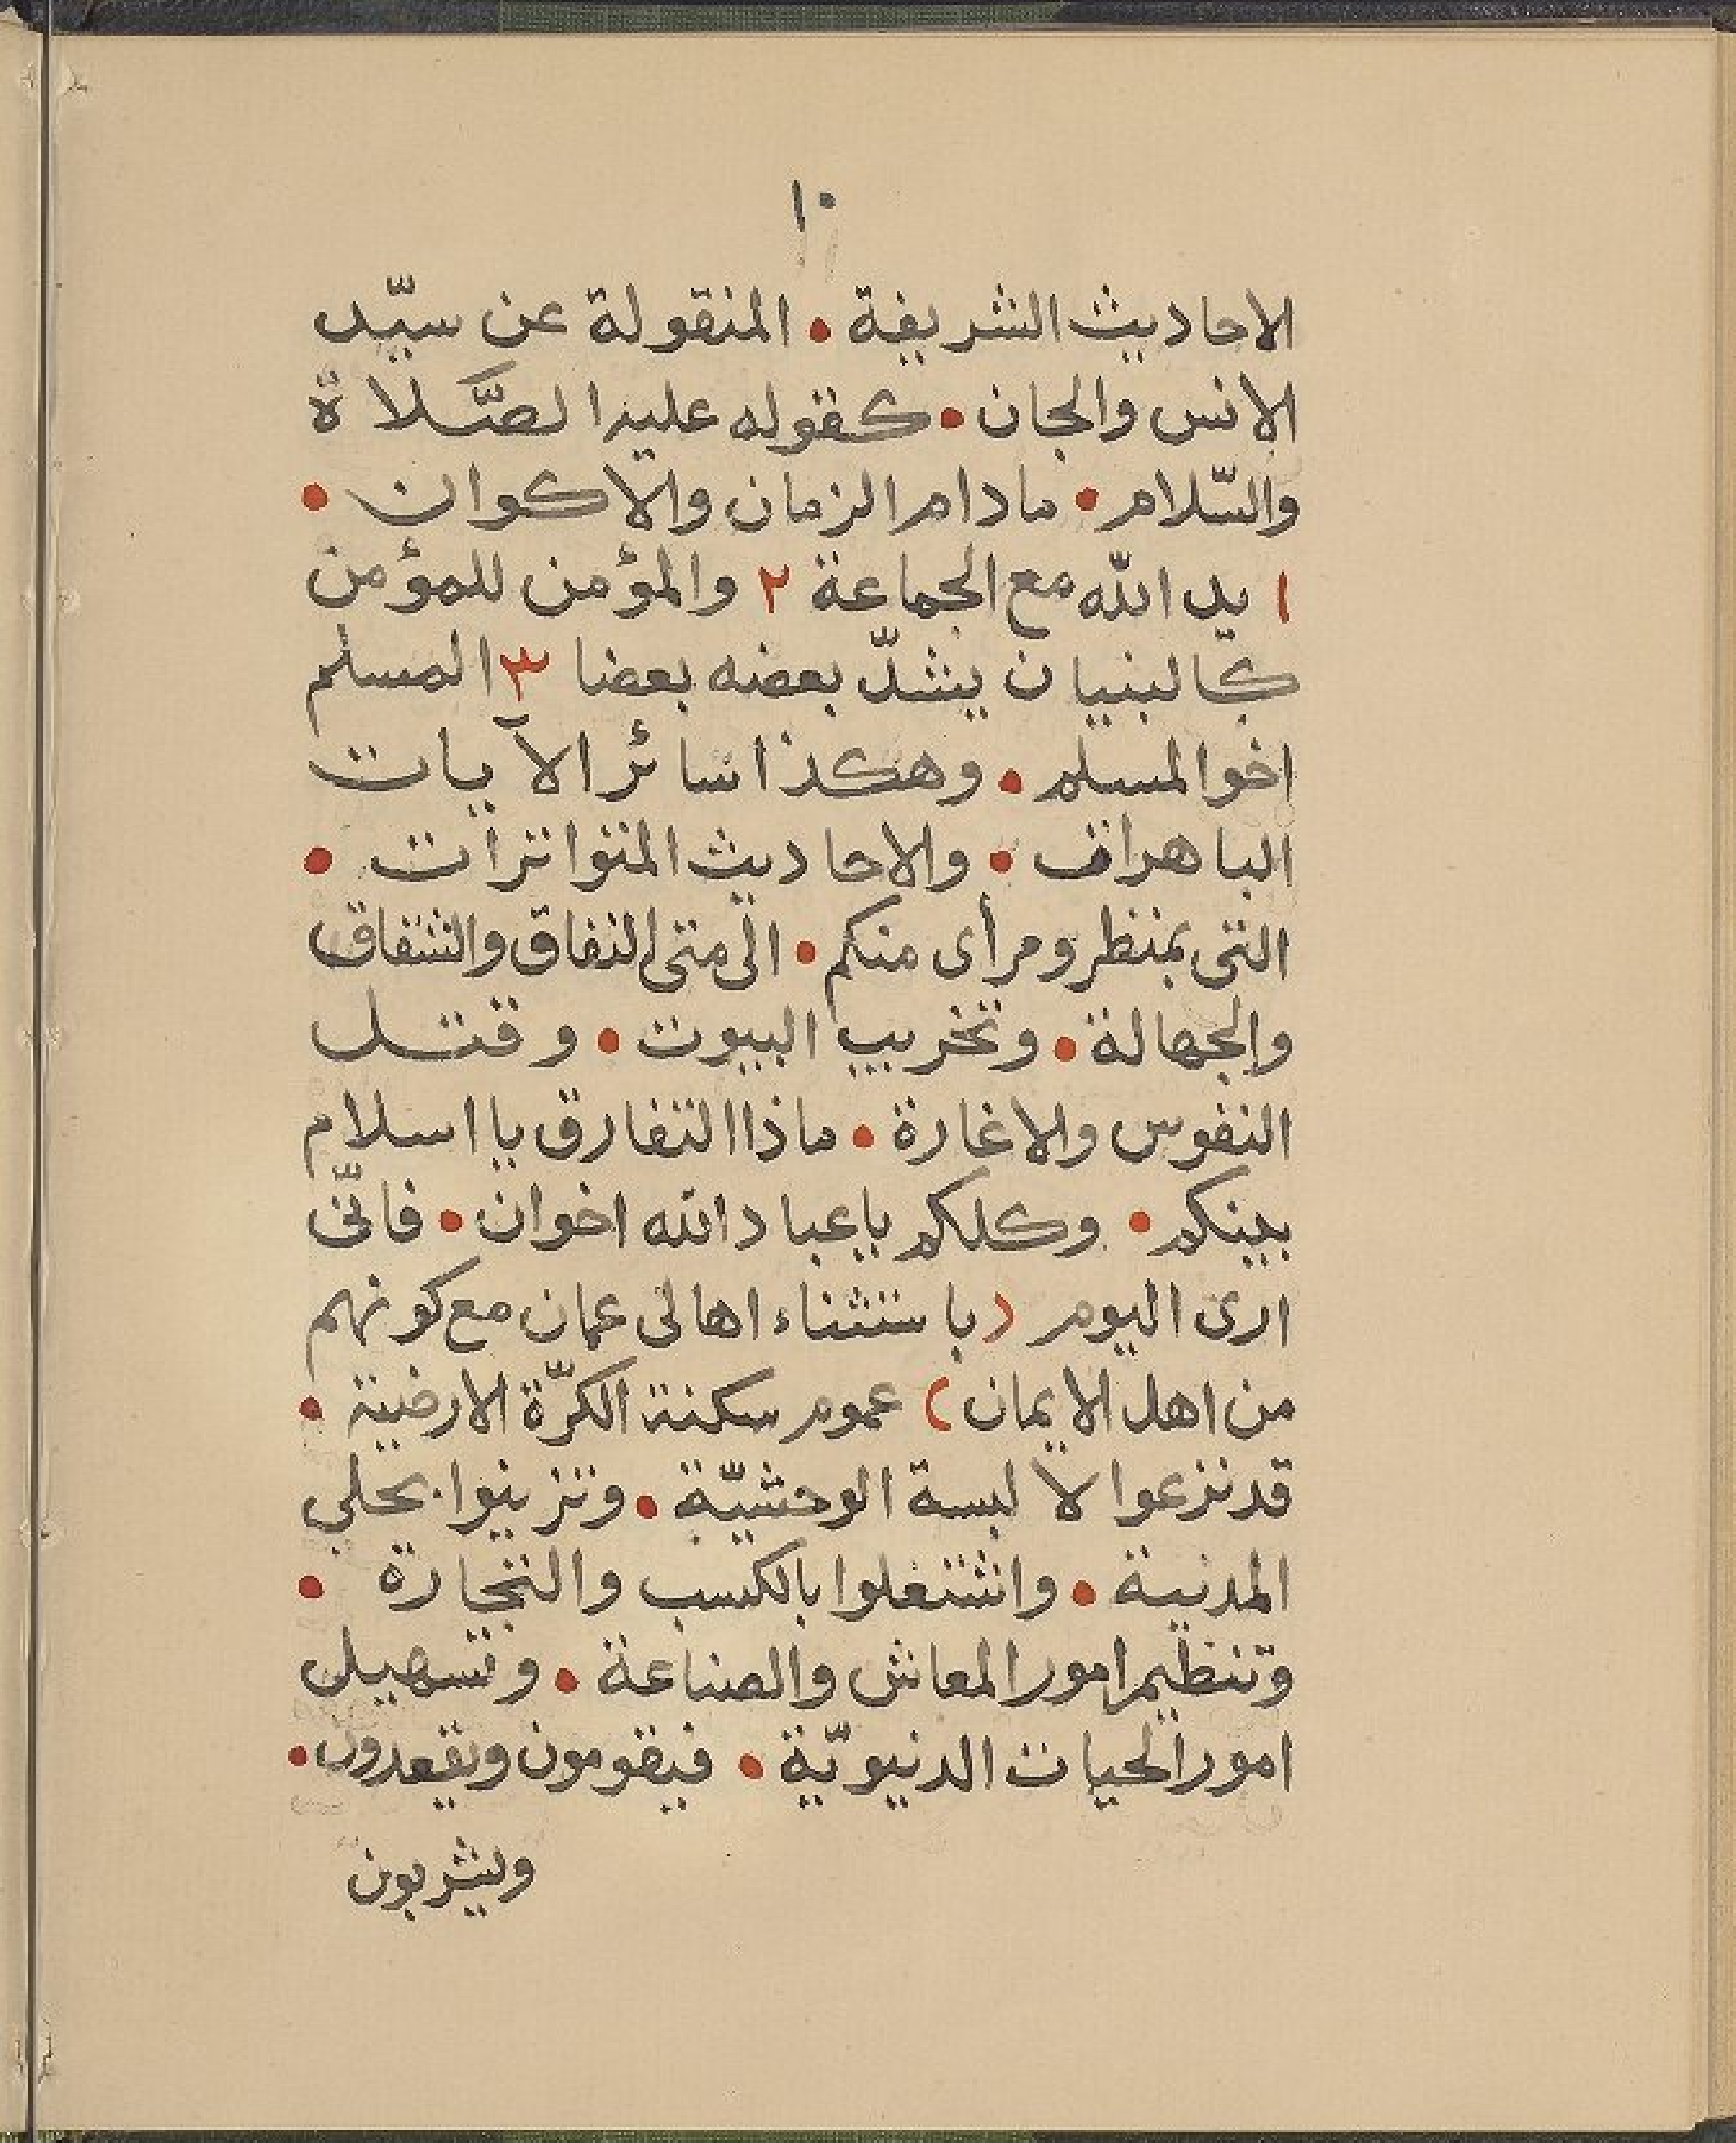 ١٠
الاحاديث الشريفة • المنقولة عن سيّد
الانس والجان • كقوله عليه الصّلاة
والسّلام • مادام الزمان والاكوان •
١ يد الله مع الجماعة ٢ والمؤمن للمؤمن
كالبنيان يشدّ بعضه بعضا ٣ المسلم
اخوا لمسلم • وهكذا سائر الآيات
الباهرات • والاحاديث المتواترات •
التى بمنظر ومرأى منكم • الى متى النفاق والشقاق
والجهالة • وتخريب البيوت • وقتل
النفوس والاغارة • ماذا التفارق يا اسلام
بينكم • وكلكم ياعباد الله اخوان • فانّى
ارى اليوم (باستثناء اهالى عمان مع كونهم
من اهل الايمان) عموم سكنة الكرّة الارضية •
قد نزعوا لا لبسة الوحشيّة • وتزينوا بحلي
المدنية • واشتغلوا بالكسب والتجارة •
وتنظيم امور المعاش والصناعة • وتسهيل
امور الحيات الدنيويّة • فيقومون ويقعدون •
ويشربون